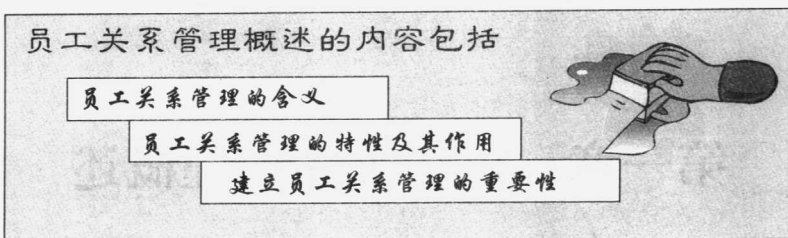 员工关系管理概述的内容包括
员工关系管理的含义
员工关系管理的特性及其作用
建立员工关系管理的重要性